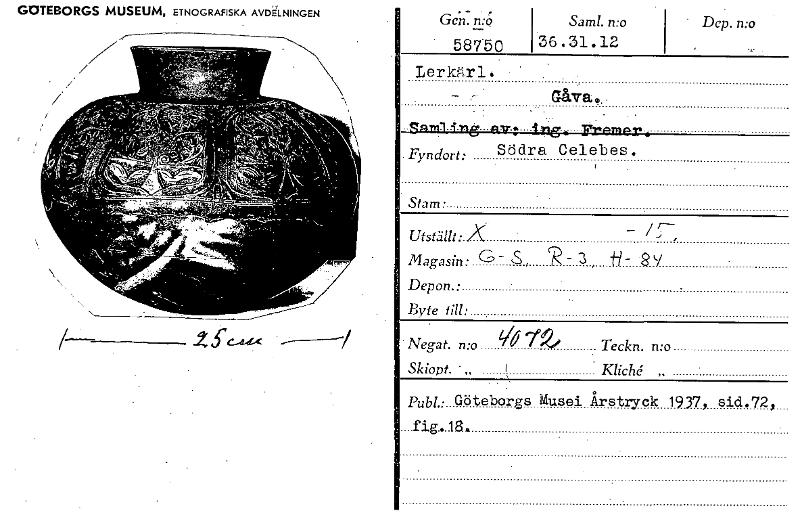 GÖTEBORGS MUSEUM, ETNOGRAFISKA AVDELNINGEN
25 cm
Gen. n:o Saml. n:o Dep. n:o
58750 36.31.12
Lerkärl.
Gåva.
Samling av: ing. Fremer.
Fyndort: Södra Celebes.
Stam:
Utställt: X -15.
Magasin: G-S, R-3, H-84
Depon.:
Byte till:
Negat. n:o 4072 Teckn. n:o
Skiopt. „ Kliché „
Publ.: Göteborgs Musei Årstryck 1937, sid.72,
fig.18.